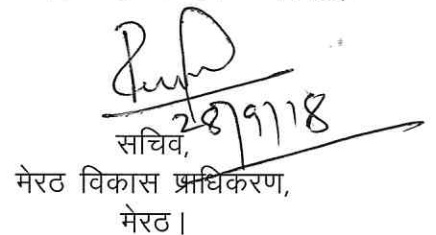 28/9/18
सचिव,
मेरठ विकास प्राधिकरण,
मेरठ।